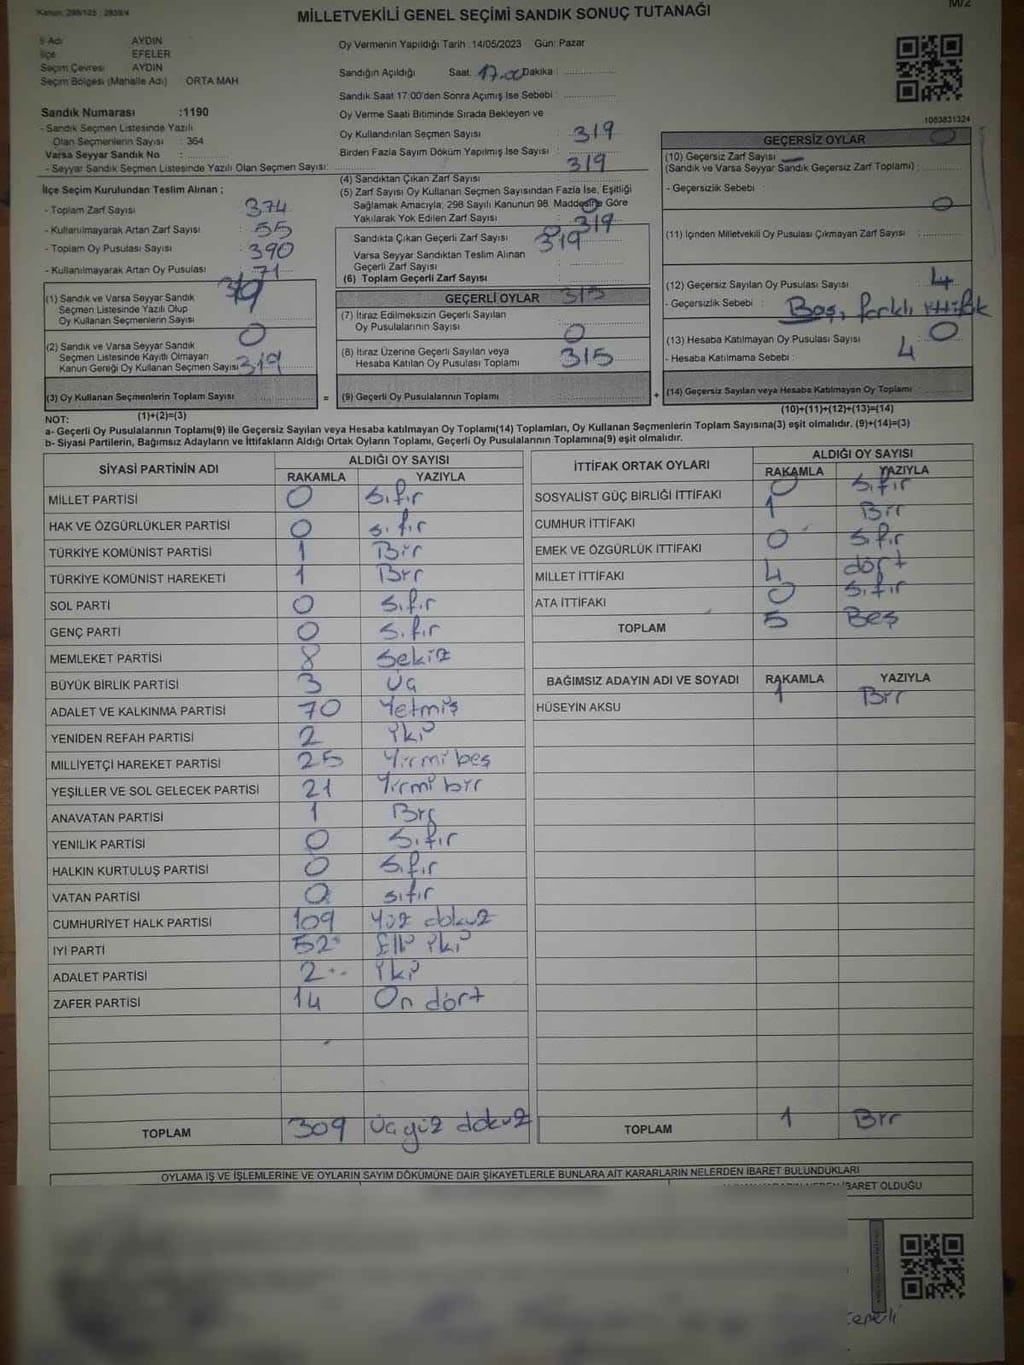 Kanun: 298/105 ; 2839/4
MİLLETVEKİLİ GENEL SEÇİMİ SANDIK SONUÇ TUTANAĞI
M/2
İl Adı AYDIN
İlçe EFELER
Seçim Çevresi AYDIN
Seçim Bölgesi (Mahalle Adı) ORTA MAH
Sandık Numarası :1190
- Sandık Seçmen Listesinde Yazılı
Olan Seçmenlerin Sayısı : 364
Varsa Seyyar Sandık No :
- Seyyar Sandık Seçmen Listesinde Yazılı Olan Seçmen Sayısı:
Oy Vermenin Yapıldığı Tarih :14/05/2023 Gün: Pazar
Sandığın Açıldığı Saat: 17.00 Dakika :
Sandık Saat 17:00'den Sonra Açımış İse Sebebi :
Oy Verme Saati Bitiminde Sırada Bekleyen ve
Oy Kullandırılan Seçmen Sayısı 319
Birden Fazla Sayım Döküm Yapılmış İse Sayısı : 319
1083831324
İlçe Seçim Kurulundan Teslim Alınan ;
- Toplam Zarf Sayısı 374
- Kullanılmayarak Artan Zarf Sayısı : 55
- Toplam Oy Pusulası Sayısı : 390
- Kullanılmayarak Artan Oy Pusulası 71
(1) Sandık ve Varsa Seyyar Sandık
Seçmen Listesinde Yazılı Olup
Oy Kullanan Seçmenlerin Sayısı
0
(2) Sandık ve Varsa Seyyar Sandık
Seçmen Listesinde Kayıtlı Olmayan
Kanun Gereği Oy Kullanan Seçmen Sayısı 319
(3) Oy Kullanan Seçmenlerin Toplam Sayısı
(1)+(2)=(3)
(4) Sandıktan Çıkan Zarf Sayısı
(5) Zarf Sayısı Oy Kullanan Seçmen Sayısından Fazla İse, Eşitliği
Sağlamak Amacıyla; 298 Sayılı Kanunun 98. Maddesine Göre 0
Yakılarak Yok Edilen Zarf Sayısı : 319
Sandıkta Çıkan Geçerli Zarf Sayısı 0
319
Varsa Seyyar Sandıktan Teslim Alınan
Geçerli Zarf Sayısı
(6) Toplam Geçerli Zarf Sayısı
GEÇERLİ OYLAR 315
(7) İtiraz Edilmeksizin Geçerli Sayılan
Oy Pusulalarının Sayısı 0
(8) İtiraz Üzerine Geçerli Sayılan veya
Hesaba Katılan Oy Pusulası Toplamı 315
= (9) Geçerli Oy Pusulalarının Toplamı
GEÇERSİZ OYLAR 0
(10) Geçersiz Zarf Sayısı
(Sandık ve Varsa Seyyar Sandık Geçersiz Zarf Toplamı) :
- Geçersizlik Sebebi :
0
(11) İçinden Milletvekili Oy Pusulası Çıkmayan Zarf Sayısı
(12) Geçersiz Sayılan Oy Pusulası Sayısı : 4
- Geçersizlik Sebebi : Boş, farklı ittifak
(13) Hesaba Katılmayan Oy Pusulası Sayısı 0
- Hesaba Katılmama Sebebi : 4
+ (14) Geçersiz Sayılan veya Hesaba Katılmayan Oy Toplamı
(10)+(11)+(12)+(13)=(14)
NOT:
a- Geçerli Oy Pusulalarının Toplamı(9) ile Geçersiz Sayılan veya Hesaba katılmayan Oy Toplamı(14) Toplamları, Oy Kullanan Seçmenlerin Toplam Sayısına(3) eşit olmalıdır. (9)+(14)=(3)
b- Siyasi Partilerin, Bağımsız Adayların ve İttifakların Aldığı Ortak Oyların Toplamı, Geçerli Oy Pusulalarının Toplamına(9) eşit olmalıdır.
SİYASİ PARTİNİN ADI ALDIĞI OY SAYISI
RAKAMLA YAZIYLA
MİLLET PARTİSİ 0 sıfır
HAK VE ÖZGÜRLÜKLER PARTİSİ 0 sıfır
TÜRKİYE KOMÜNİST PARTİSİ 1 Bir
TÜRKİYE KOMÜNİST HAREKETİ 1 Bir
SOL PARTİ 0 sıfır
GENÇ PARTİ 0 sıfır
MEMLEKET PARTİSİ 8 sekiz
BÜYÜK BİRLİK PARTİSİ 3 Üç
ADALET VE KALKINMA PARTİSİ 70 Yetmiş
YENİDEN REFAH PARTİSİ 2 İki
MİLLİYETÇİ HAREKET PARTİSİ 25 Yirmi beş
YEŞİLLER VE SOL GELECEK PARTİSİ 21 Yirmi bir
ANAVATAN PARTİSİ 1 Bir
YENİLİK PARTİSİ 0 sıfır
HALKIN KURTULUŞ PARTİSİ 0 sıfır
VATAN PARTİSİ 0 sıfır
CUMHURİYET HALK PARTİSİ 109 Yüz dokuz
İYİ PARTİ 52 Elli iki
ADALET PARTİSİ 2 İki
ZAFER PARTİSİ 14 On dört
TOPLAM 309 Üç yüz dokuz
İTTİFAK ORTAK OYLARI ALDIĞI OY SAYISI
RAKAMLA YAZIYLA
SOSYALİST GÜÇ BİRLİĞİ İTTİFAKI 0 sıfır
CUMHUR İTTİFAKI 1 Bir
EMEK VE ÖZGÜRLÜK İTTİFAKI 0 sıfır
MİLLET İTTİFAKI 4 dört
ATA İTTİFAKI 0 sıfır
TOPLAM 5 Beş
BAĞIMSIZ ADAYIN ADI VE SOYADI RAKAMLA YAZIYLA
HÜSEYİN AKSU 1 Bir
TOPLAM 1 Bir
OYLAMA İŞ VE İŞLEMLERİNE VE OYLARIN SAYIM DÖKÜMÜNE DAİR ŞİKAYETLERLE BUNLARA AİT KARARLARIN NELERDEN İBARET BULUNDUKLARI
İBARET OLDUĞU